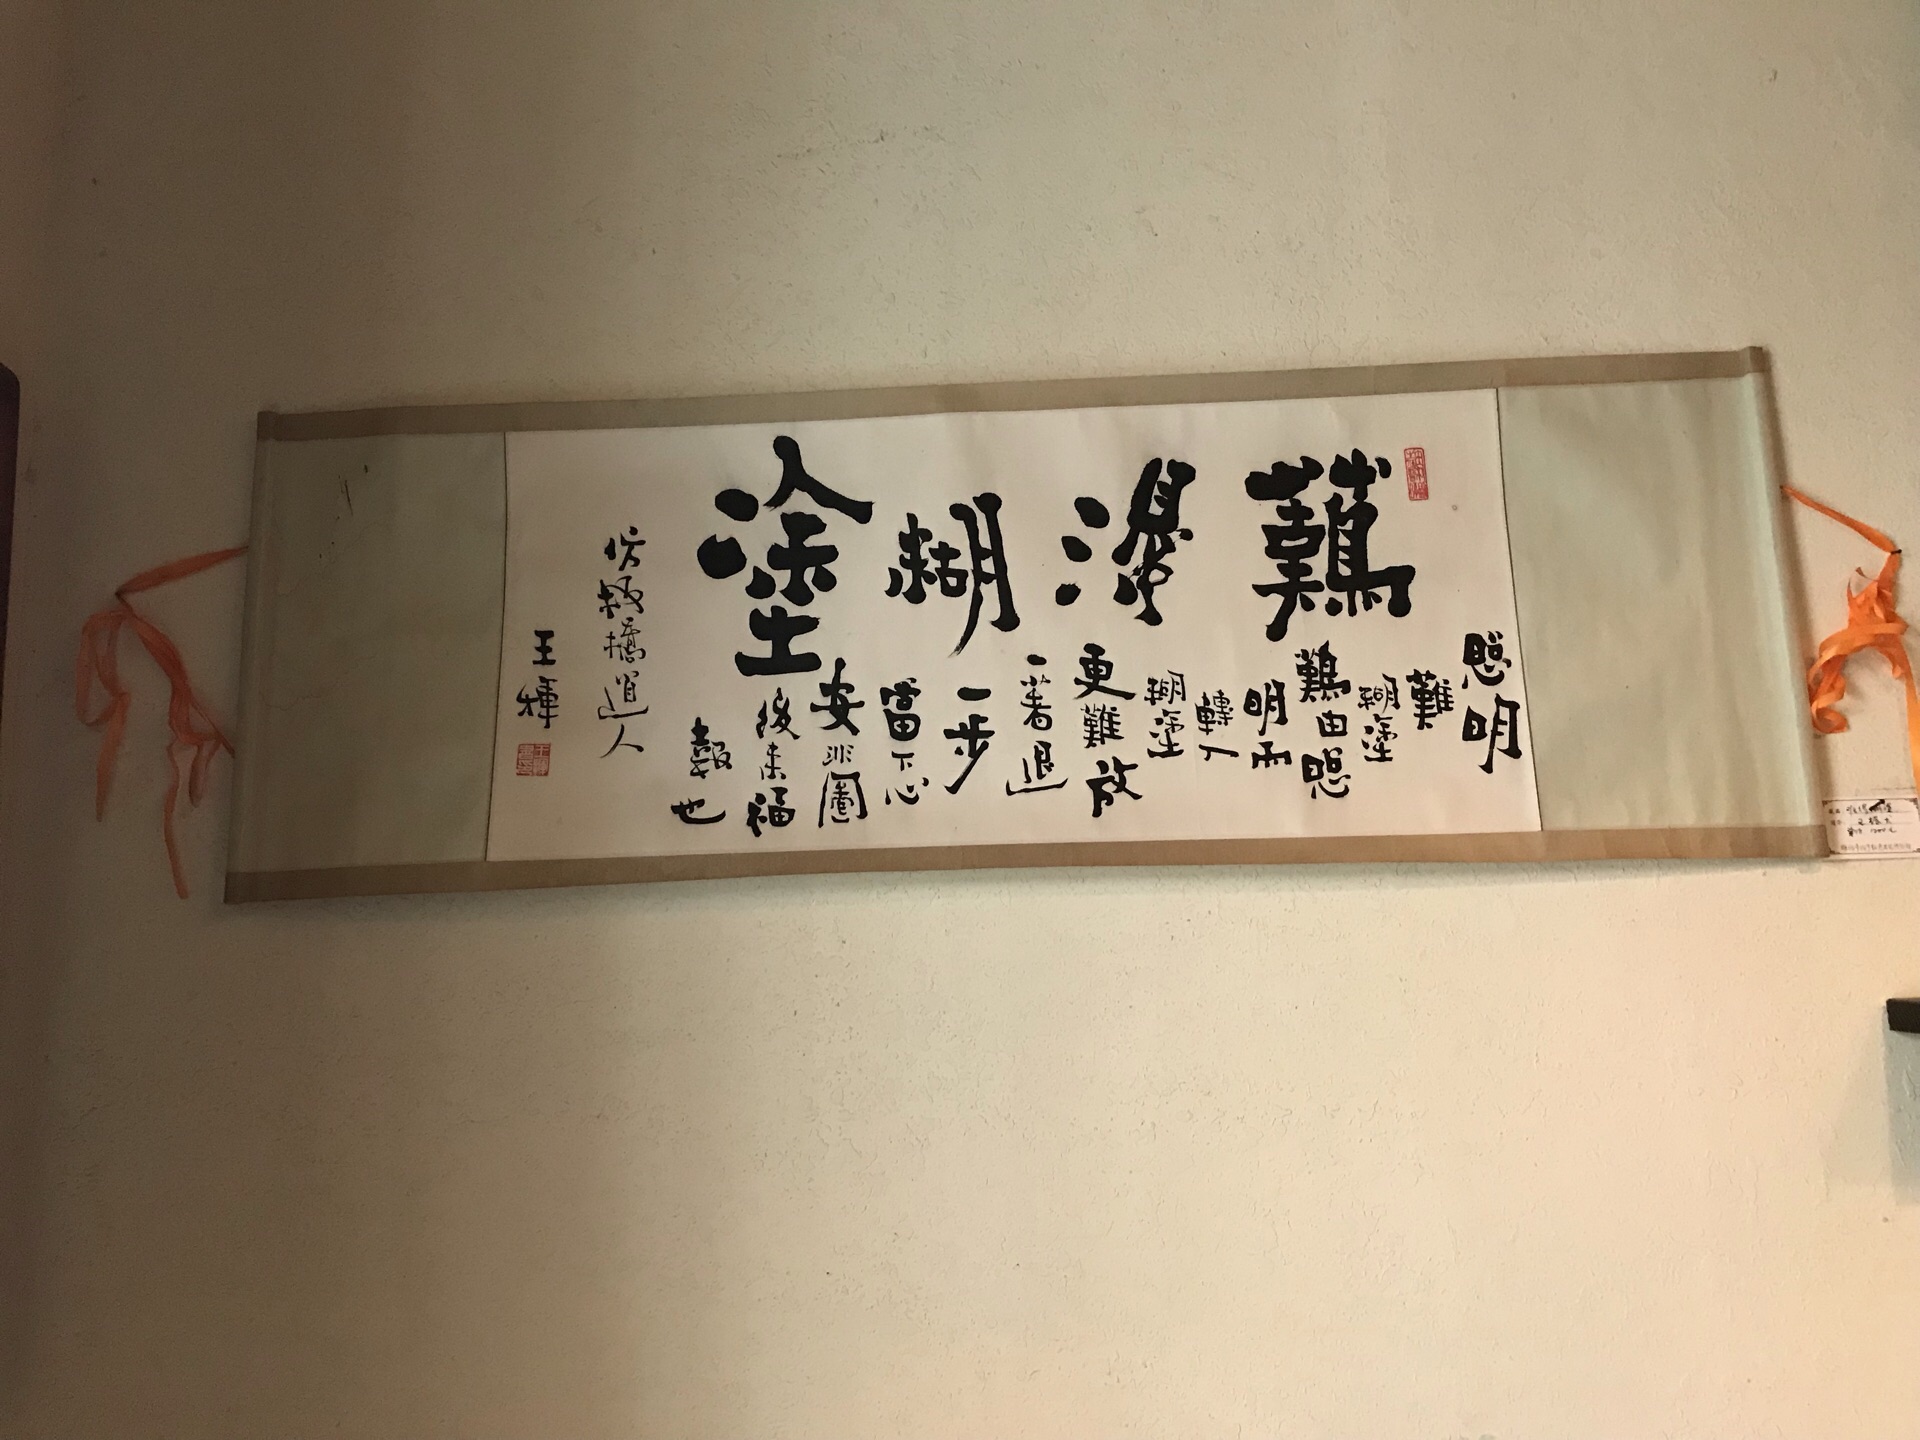 難得糊塗
聰明
難
糊塗
難由聰
明而
轉入
糊塗
更難放
一著退
一步
當下心
安非圖
後来福
報也
仿板橋道人
王輝